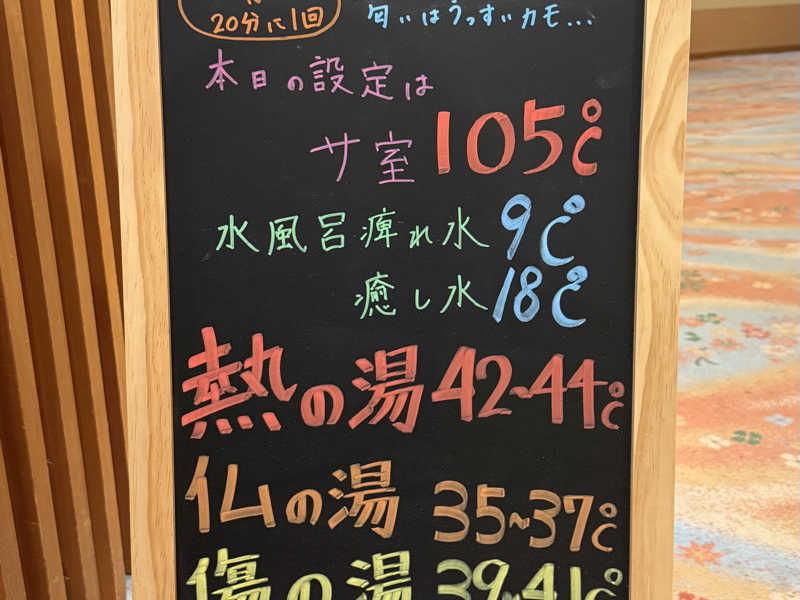 20分に1回
匂いはうっすいカモ...
本日の設定は
サ室 105℃
水風呂痺れ水 9℃
癒し水 18℃
熱の湯 42~44℃
仏の湯 35~37℃
傷の湯 39~41℃